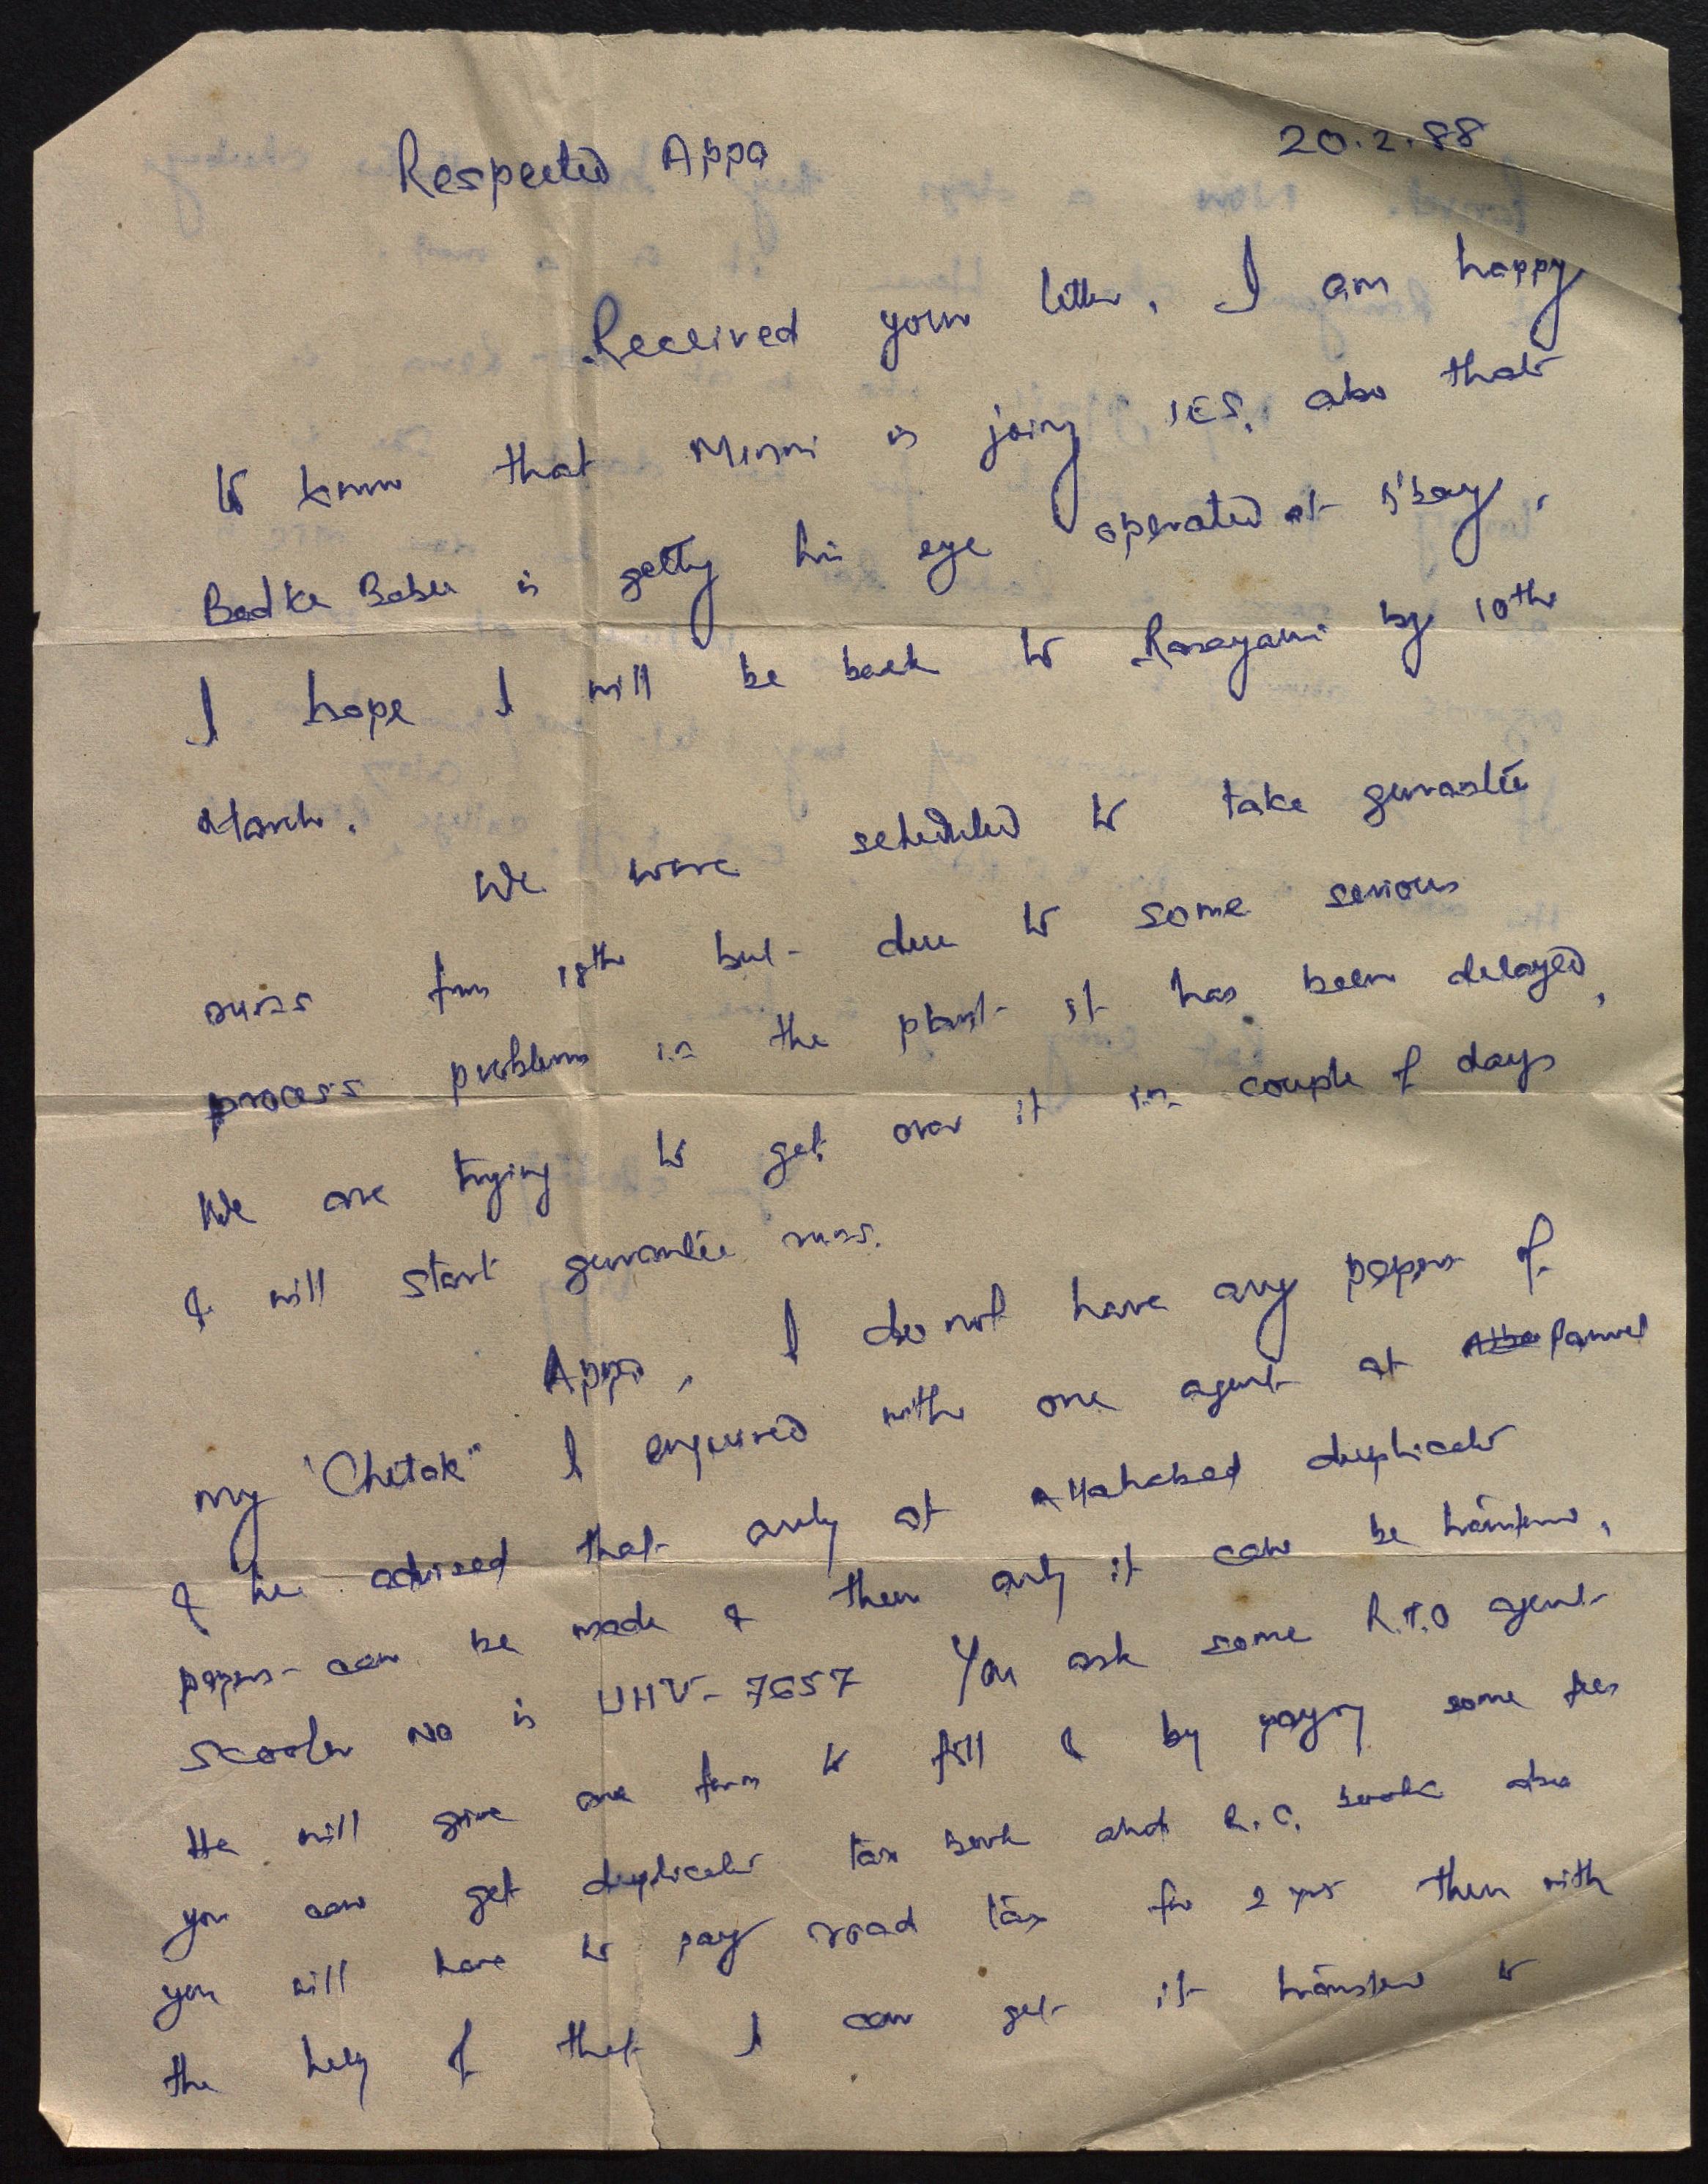 20.2.88
Respected Appa
Received your letter, I am happy
to know that Minni is joing IES, also that
Badke Babu is getting his eye operated at B'bay,
I hope I will be back to Rasayani by 10th
March.
We were scheduled to take gurantee
runs from 18th but due to some serious
process problems in the plant it has been delayed,
We are trying to get over it in couple of days
& will start gurantee runs.
Appa, I do not have any papers of
my "Chetak" I enquired with one agent at Panvel
& he advised that only at Allahabad duplicate
papers can be made & then only it can be transfer,
Scooter No is UHV-7657 You ask some R.T.O agent
He will give one form to fill & by paying some fees
you can get duplicate tax book and R.C. book also
you will have to pay road tax for 2 yrs then with
the help of that I can get it transfer to